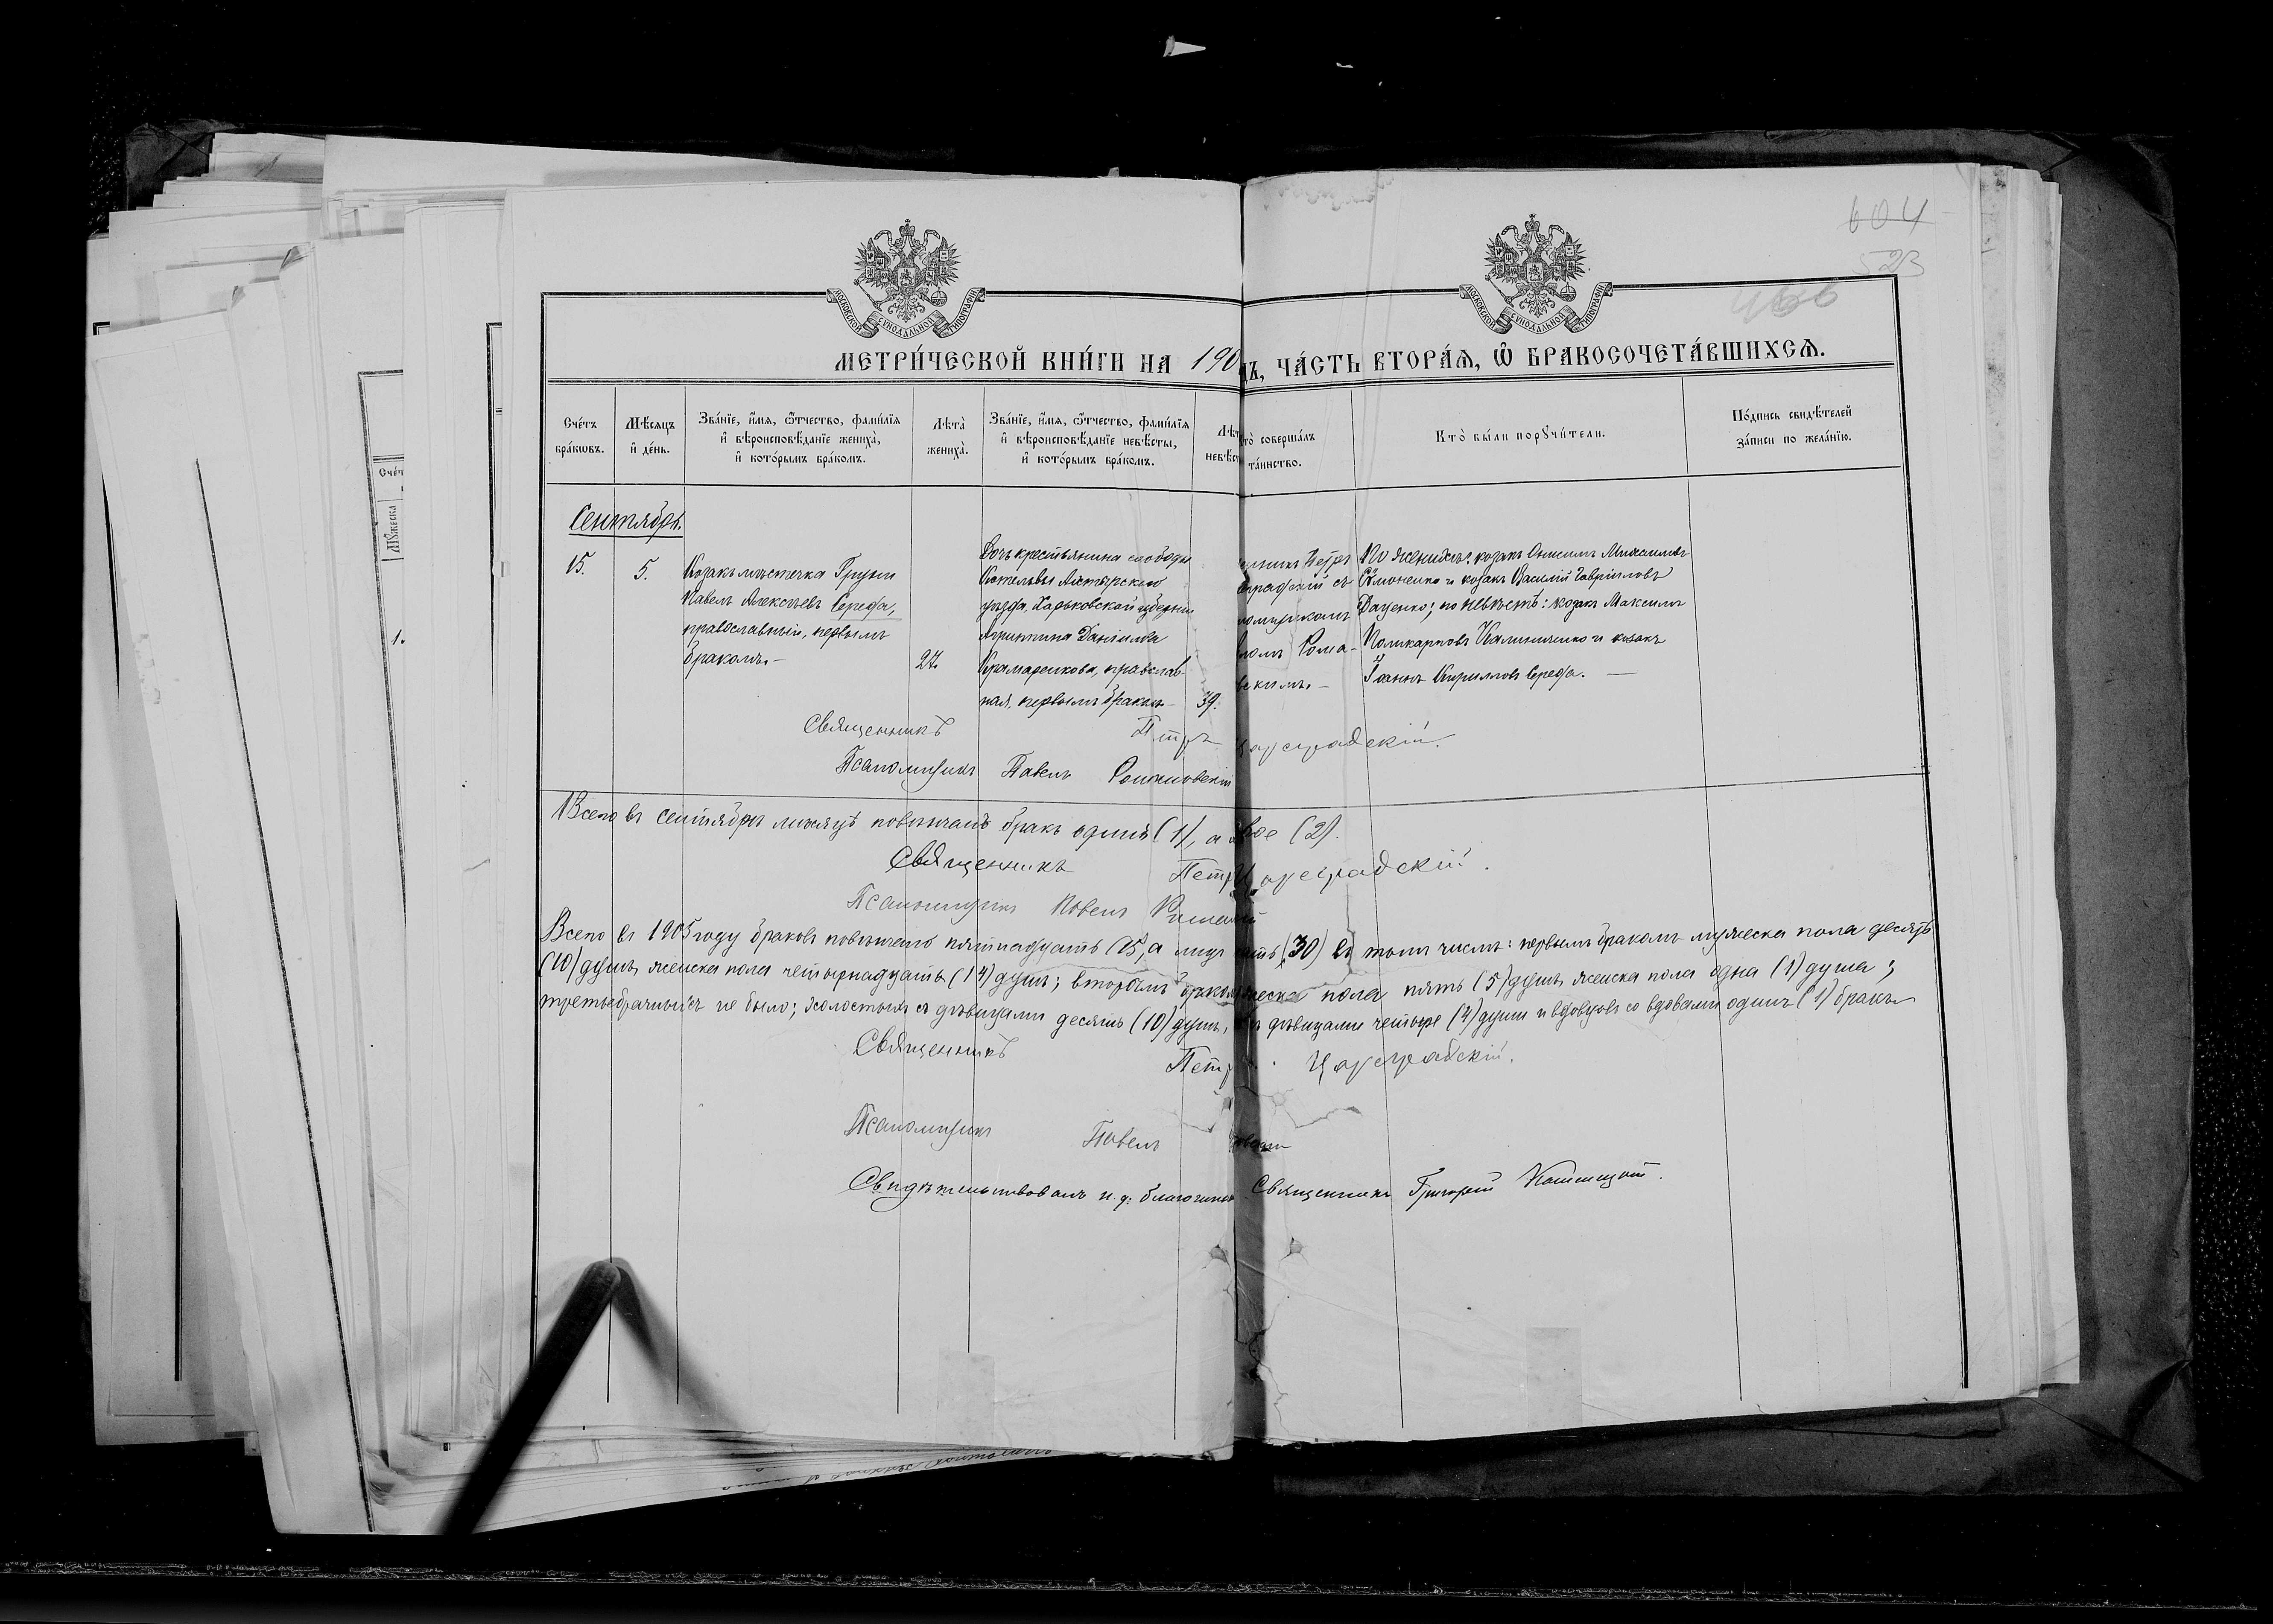 604
523
466
МОСКОВСКОЙ СѴНОДАЛЬНОЙ ТИПОГРАФІИ
МОСКОВСКОЙ СѴНОДАЛЬНОЙ ТИПОГРАФІИ
МЕТРИ́ЧЕСКОЙ КНИ́ГИ НА 190
ДЪ, ЧА́СТЬ ВТОРА́Ѧ, Ѽ БРАКОСОЧЕТА́ВШИХСѦ.
Сче́тъ бра́кѡвъ.
Мѣ́сяцъ и҆ де́нь.
Зва́нїе, и҆́мѧ, ѻ҆́тчество, фами́лїѧ и҆ вѣроисповѣ́данїе жениха̀, и҆ кото́рымъ бра́комъ.
Лѣта̀ жениха̀.
Зва́нїе, и҆́мѧ, ѻ҆́тчество, фами́лїѧ и҆ вѣроисповѣ́данїе невѣ́сты, и҆ кото́рымъ бра́комъ.
Лѣт невѣст
то̀ соверша́лъ та́инство.
Кто̀ бы́ли порꙋчи́тели.
По́дпись свидѣ́телей за́писи по жела́нїю.
Сентябрь.
15.
5.
Козакъ мѣстечка Груни
Павелъ Алексѣевъ Середа,
православный, первымъ
бракомъ.—
27.
Дочь крестьянина слободы
Котельвы Ахтырскаго
уѣзда, Харьковской губерніи
Даніилова
Крамаренкова, православ-
ная, первымъ бракомъ—
39.
щенникъ Петръ
реградскій съ
ломщикомъ
ломъ Рома-
вскимъ.—
По женихѣ: козакъ Онисимъ Михаиловъ
Симоненко и козакъ Василій Гавріиловъ
Даценко; по невѣстѣ: козакъ Максимъ
Поликарповъ Калиниченко и козакъ
Іоаннъ Кирилловъ Середа.—
Священникъ Петръ Цареградскій.
Псаломщикъ Павелъ Романовскій
Всего въ Сентябрѣ мѣсяцѣ повѣнчанъ бракъ одинъ (1), а двое (2).
Священникъ Петръ Цареградскій.
Псаломщикъ Павелъ Романовскій
Всего въ 1905 году браковъ повѣнчано пятнадцать (15), а лицъ цать (30) въ томъ числѣ: первымъ бракомъ мужеска пола десять
(10) душъ, женска пола четырнадцать (14) душъ; вторымъ бракомъ жеска пола пять (5) душъ, женска пола одна (1) душа;
третьебрачныхъ не было; холостыхъ съ дѣвицами десять (10) душъ, съ дѣвицами четыре (4) души и вдовцовъ со вдовами одинъ (1) бракъ.
Священникъ Петръ Цареградскій.
Псаломщикъ Павелъ новскій
Свидѣтельствовалъ и. д. благочиннаго Священникъ Григорій
Счет
Мꙋ́жеска
1.